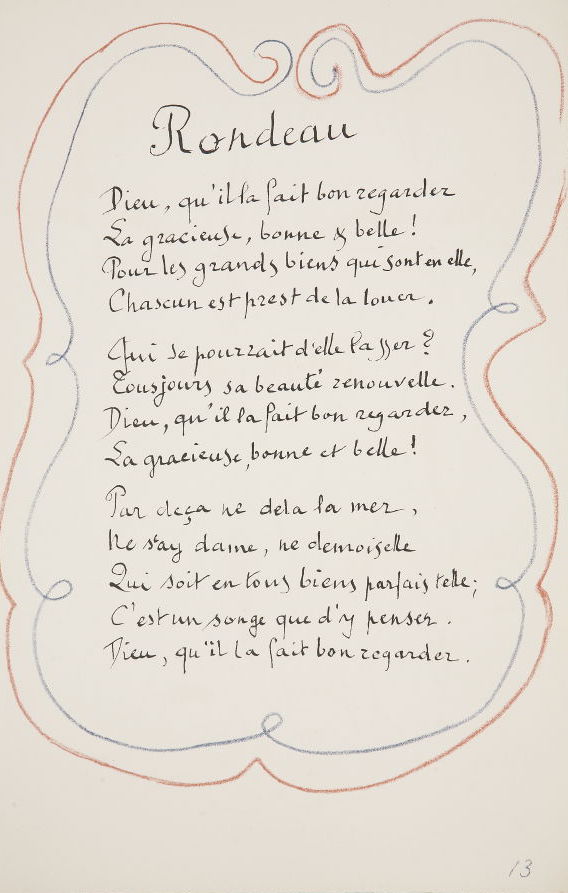 Rondeau
Dieu, qu'il la fait bon regarder
La gracieuse, bonne & belle !
Pour les grands biens qui sont en elle,
Chascun est prest de la louer.
Qui se pourrait d'elle lasser ?
Tousjours sa beauté renouvelle.
Dieu, qu'il la fait bon regarder,
La gracieuse, bonne et belle !
Par deça ne dela la mer,
Ne sçay dame, ne demoiselle
Qui soit en tous biens parfais telle;
C'est un songe que d'y penser.
Dieu, qu'il la fait bon regarder.
13